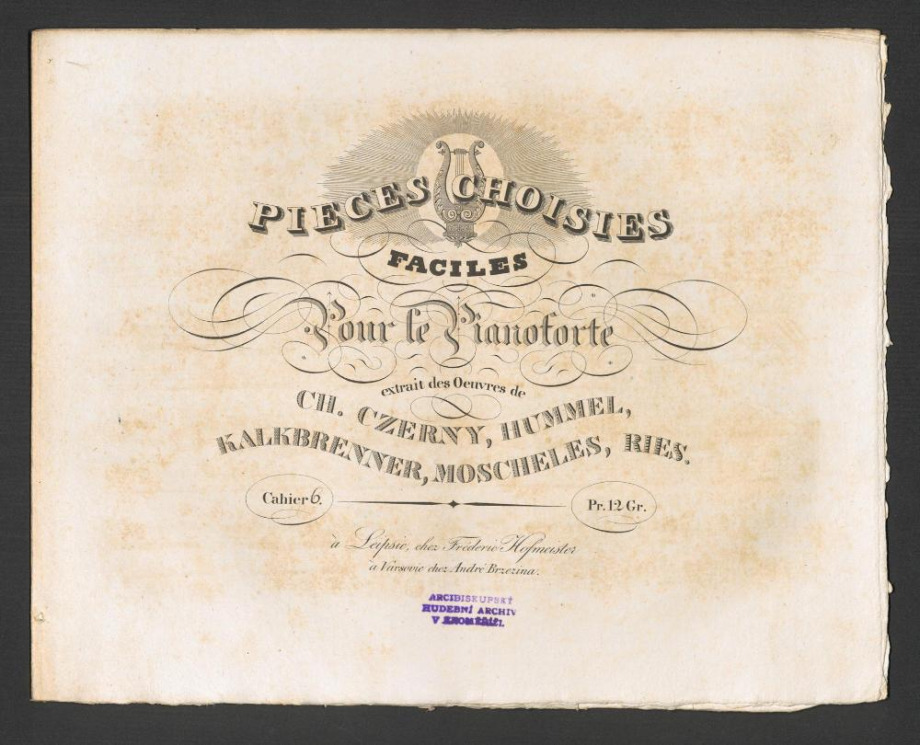 PIECES CHOISIES
FACILES
Pour le Pianoforte
extrait des Oeuvres de
CH. CZERNY, HUMMEL,
KALKBRENNER, MOSCHELES, RIES.
Cahier 6. Pr. 12 Gr.
à Leipsic, chez Fréderic Hofmeister
a Varsovie chez André Brzezina.
ARCIBISKUPSKÝ
HUDEBNÍ ARCHIV
V